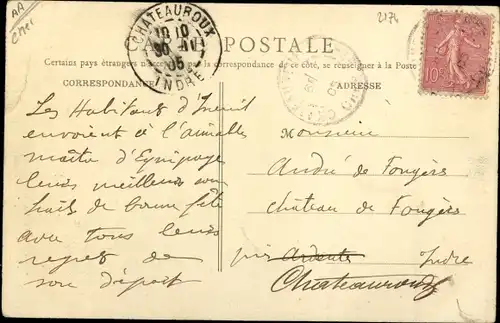 AA
Cher
2174
CHATEAUROUX
18 10
30 -11
05
INDRE
CARTE POSTALE
Certains pays étrangers n'acceptent pas la correspondance de ce côté, se renseigner à la Poste
CORRESPONDANCE
ADRESSE
10
Les Habitants d'Ineuil
envoient à l'aimable
maître d'Equipage
leurs meilleurs sou
haits de bonne fête
avec tous leurs
regrets de
son départ
Monsieur
André de Fougères
château de Fougères
par Ardentes Indre
Chateauroux